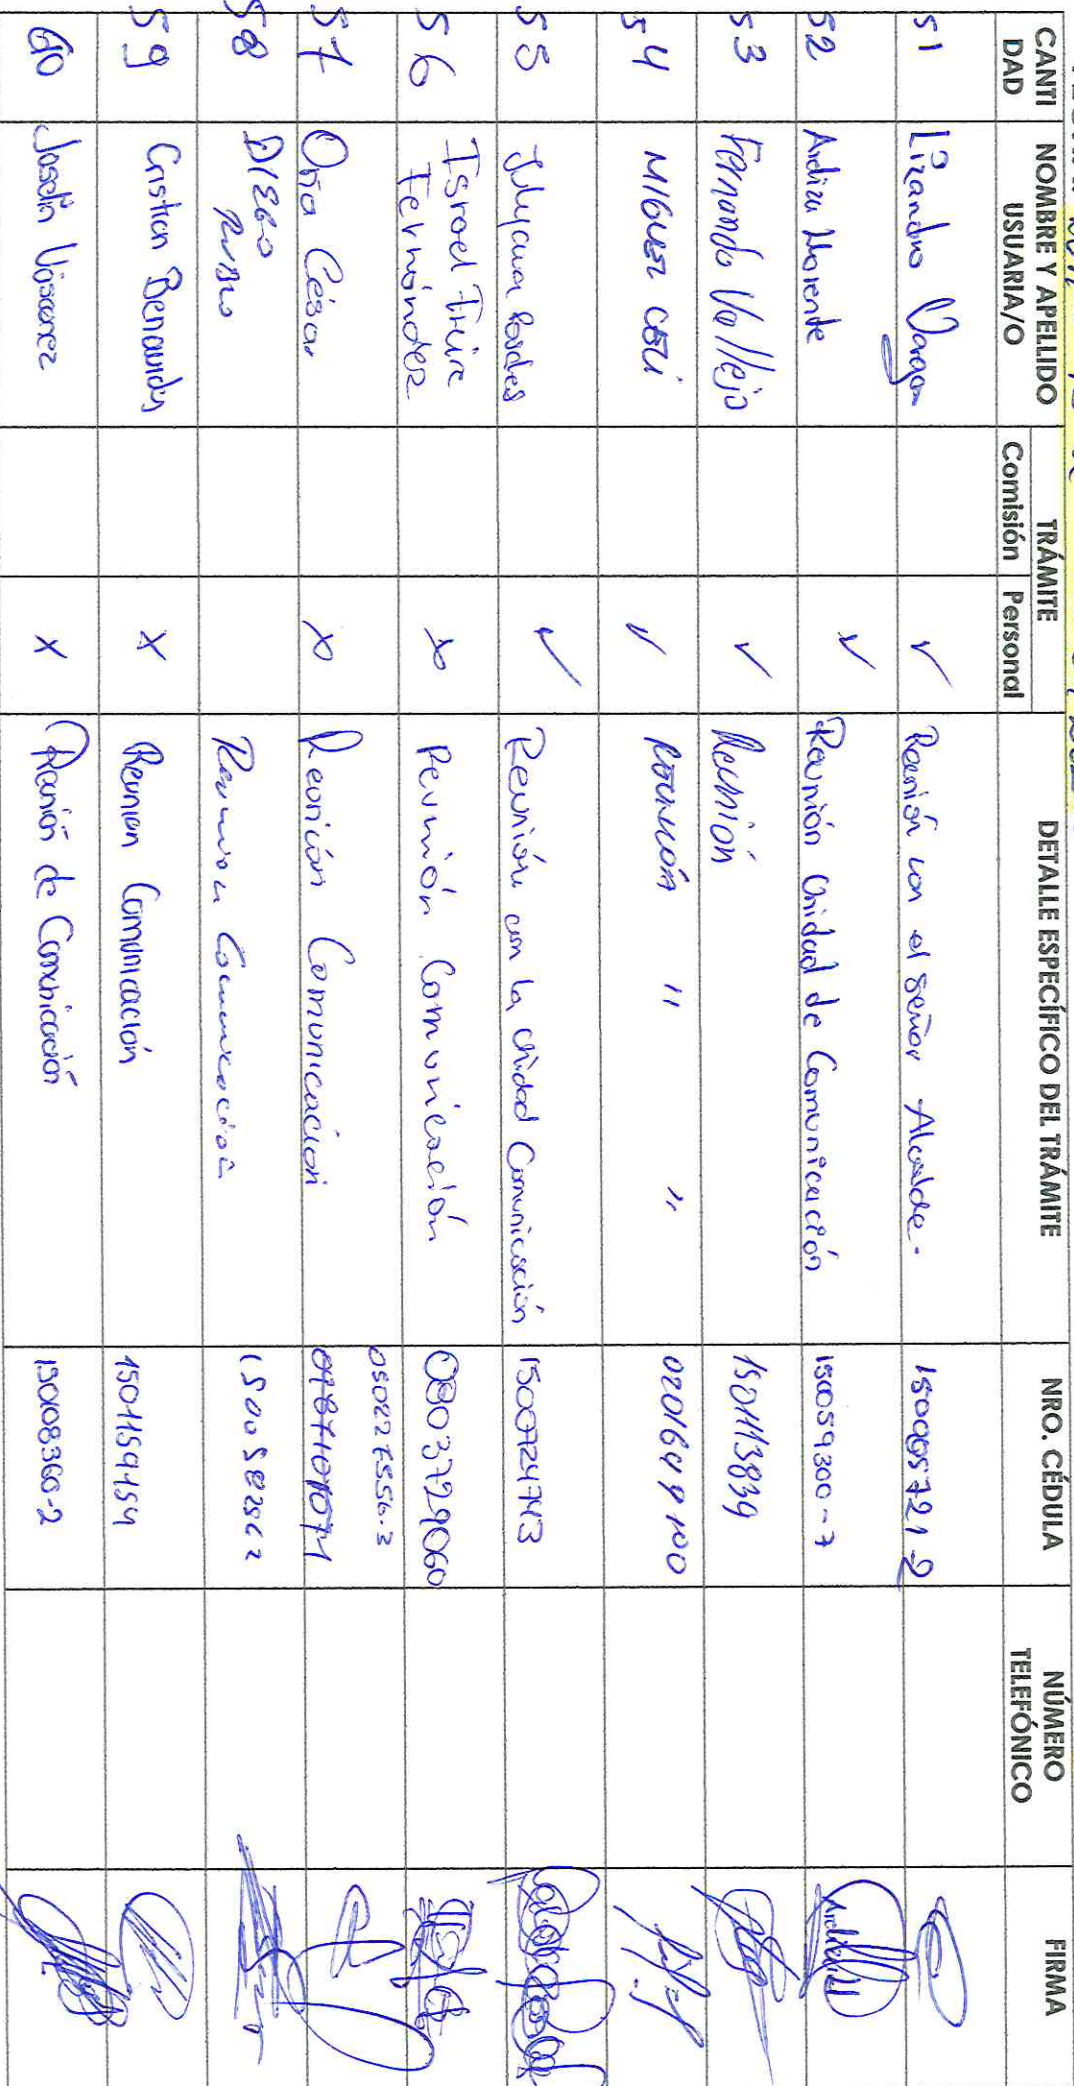 CANTI DAD NOMBRE Y APELLIDO USUARIA/O TRÁMITE Comisión Personal DETALLE ESPECÍFICO DEL TRÁMITE NRO. CÉDULA NÚMERO TELEFÓNICO FIRMA
51 Lizandro Vargas ✓ Reunión con el señor Alcalde.
52 ✓ Reunión Unidad de Comunicación 150059300-7
53 Fernando Vallejo ✓ Reunión 1501113839
54 MIGUEL CELI ✓ Reunión " "
55 ✓ Reunión con la Unidad Comunicación 1500724743
56 Israel Freire Fernández x Reunión Comunicación 0803729060
57 Oña César x Reunión Comunicación
58 DIEGO RUBIO Reunión Comunicación
59 Cristian Benavides x Reunion Comunicación 1501159154
60 Joselin x Reunión de Comunicación 150108360-2